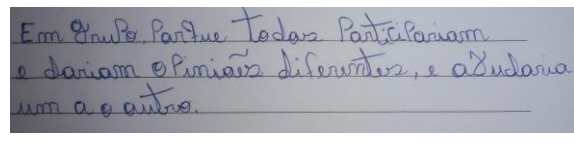 Em grupo, Parque todas Participariam
e dariam opiniões diferentes, e ajudaria
um a o outro.